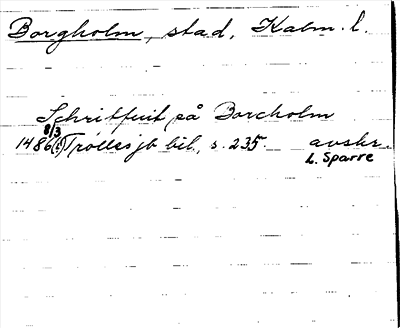 Borgholm, stad, Kalm. l.
Schriffuit på Borcholm
8/3
1486(?) Trolles jb bil, s. 235. avskr.
L. Sparre